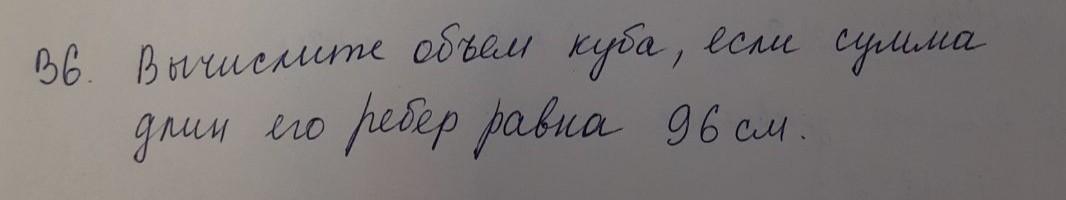 В6. Вычислите объем куба, если сумма
длин его ребер равна 96 см.